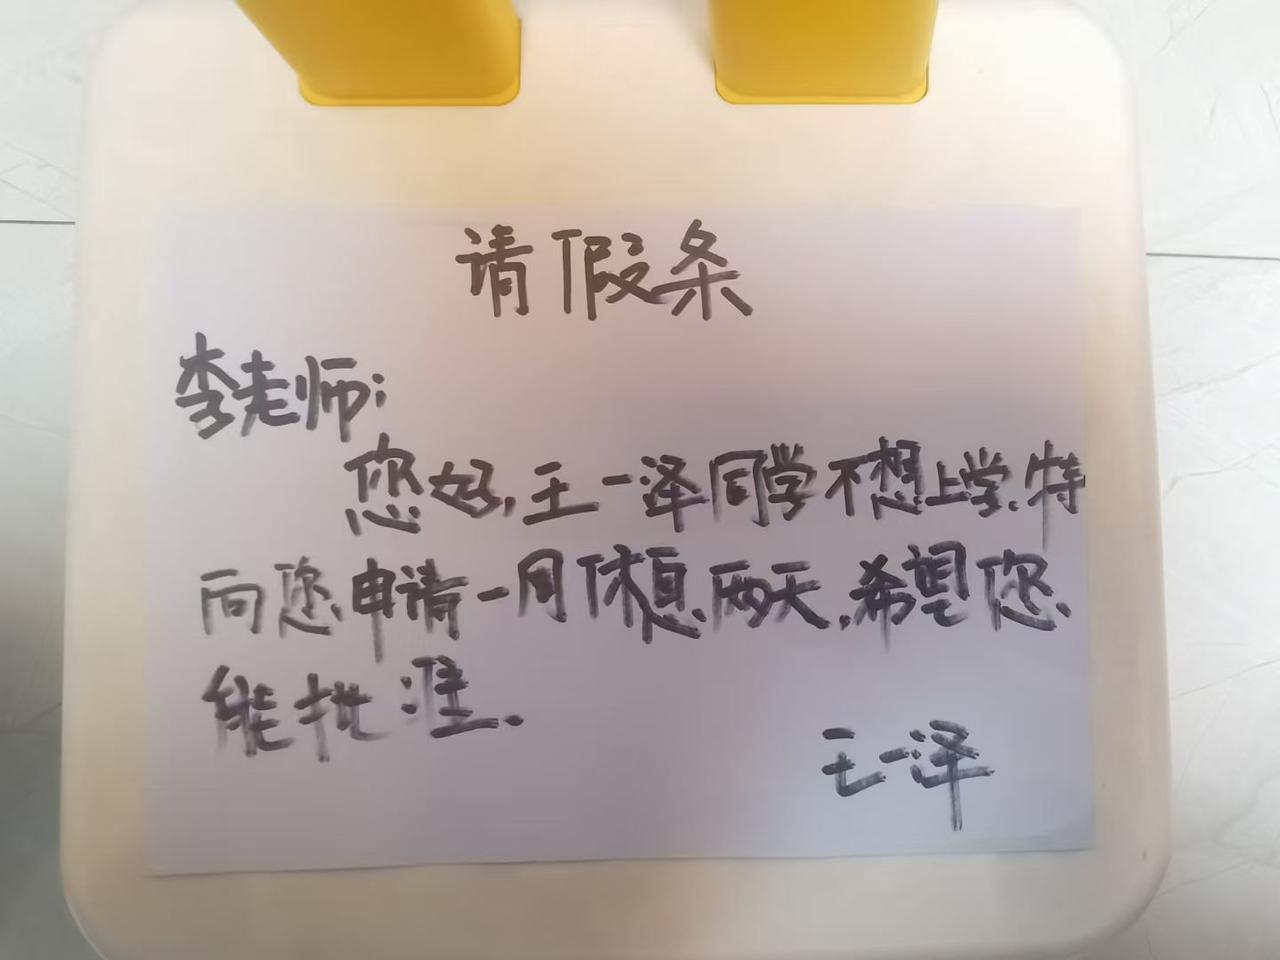 请假条
李老师:
您好,王一泽同学不想上学.特
向您申请一月休息两天.希望您
能批准.
王一泽